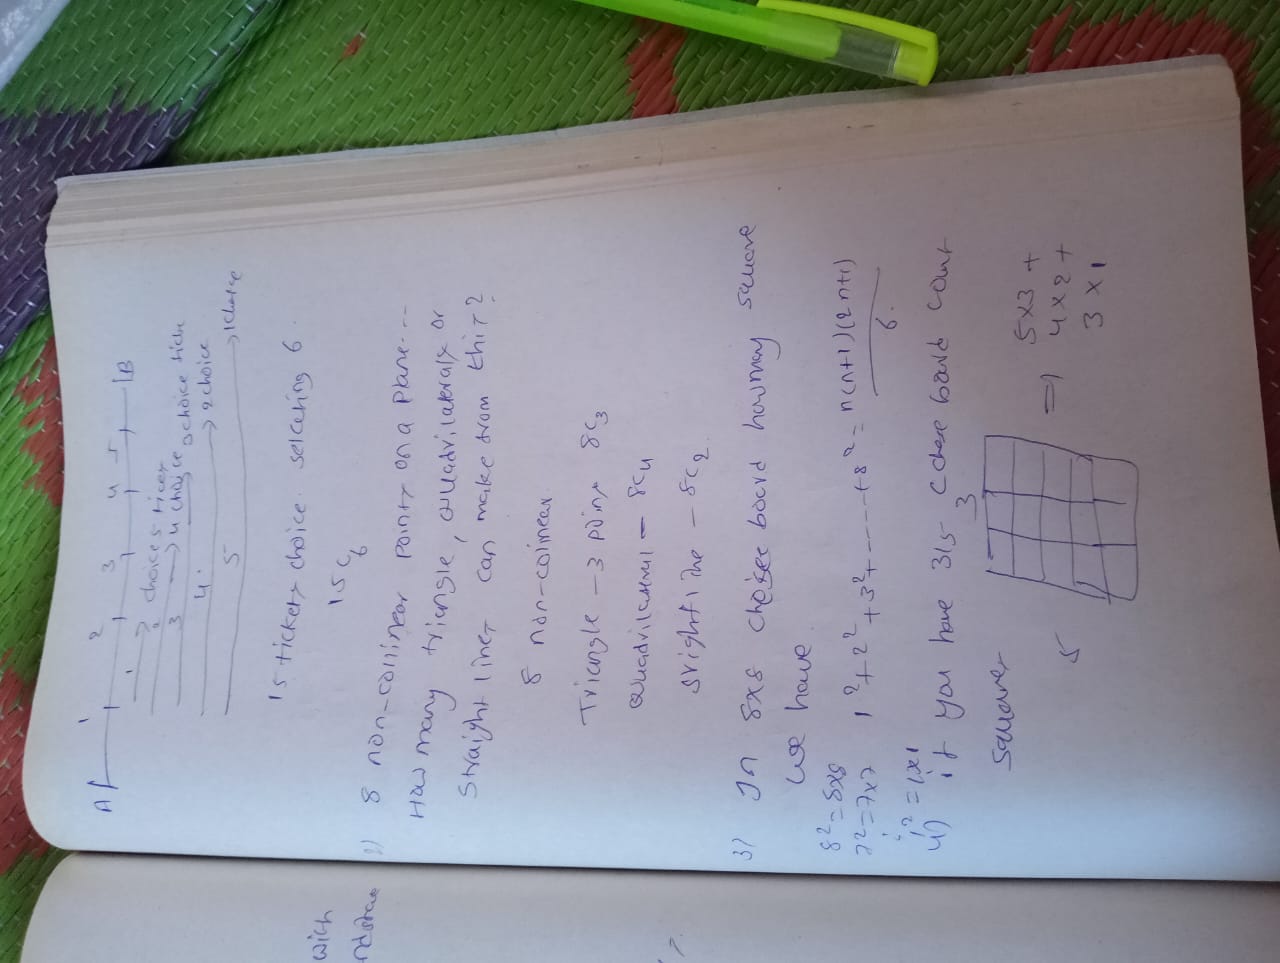 A 1 2 3 4 5 B
1 → choice 5 ticket
2
3 → 4 choice
3 choice ticke
4. → 2 choice
5 → 1 choice
15 tickets choice selecting 6.
15C6
2) 8 non-collinear points on a plane...
How many triangle, quadrilaterals or
straight lines can make from this?
8 non-colinear
Triangle - 3 points 8C3
Quadrilateral = 8C4
sright line - 8C2
3) In 8x8 chess board how many square
we have
8² = 8x8 1² + 2² + 3² + ---- + 8² = n(n+1)(2n+1)
7² = 7x7 6.
1² = 1x1
4) if you have 3|5 chess board count
squares
3
5
=) 5x3 +
4x2 +
3x1
with